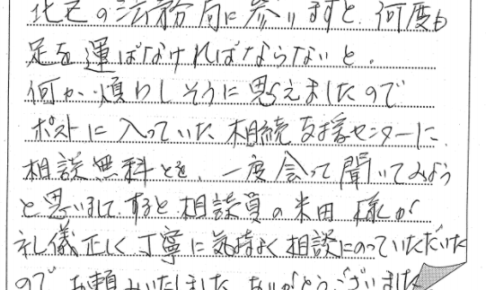 北区の法務局に参りますと、何度も
足を運ばなければならないと、
何か煩わしそうに思えましたので
ポストに入っていた相続支援センターに
相談無料とを、一度会って聞いてみよう
と思いまして、すると相談員の米田様が
礼儀正しく丁寧に気持よく相談にのっていただいた
ので お頼みいたしました。ありがとうございました